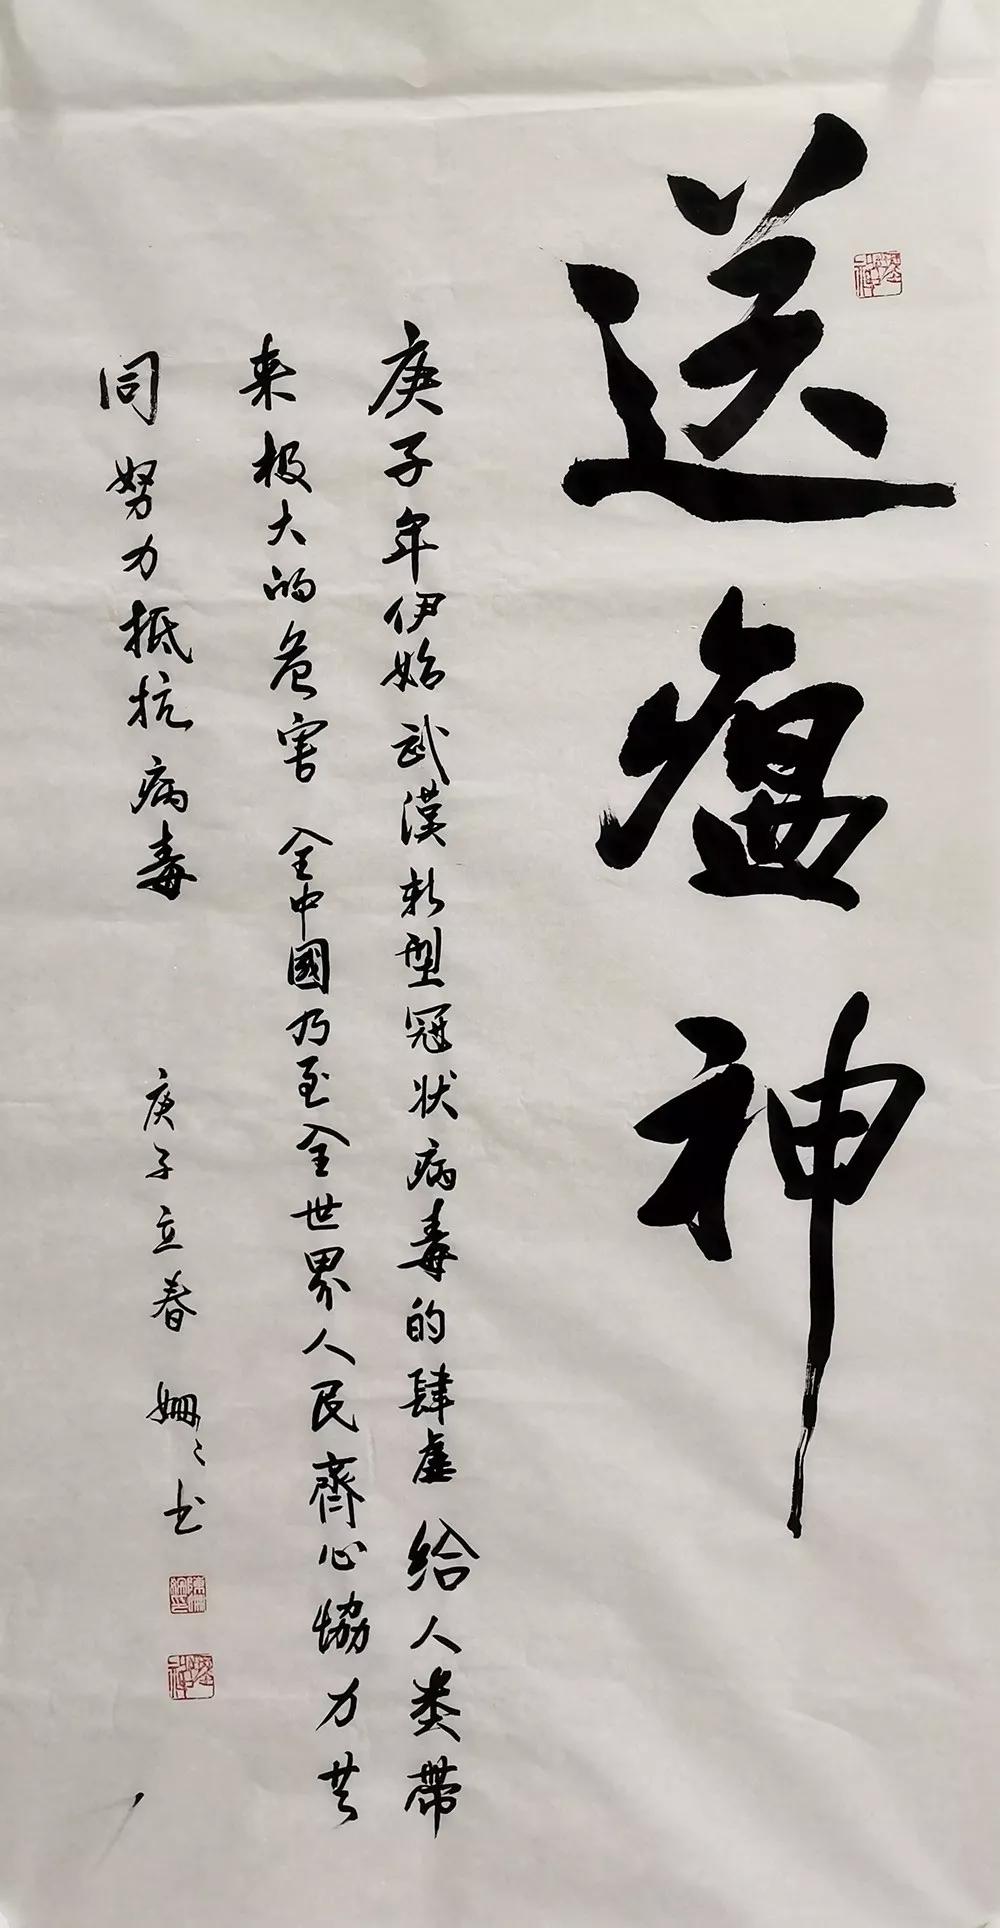 送瘟神
庚子年伊始武漢新型冠状病毒的肆虐给人类带
来极大的危害全中國乃至全世界人民齊心協力共
同努力抵抗病毒
庚子立春姗〻书